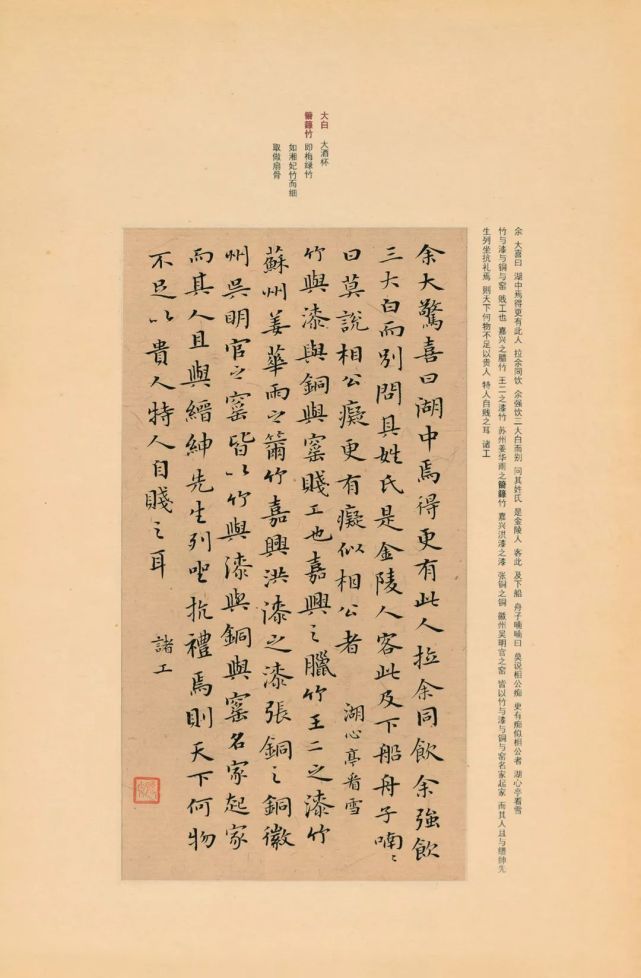 大白 大酒杯
竹 即梅绿竹
如湘妃竹而细
取做扇骨
余 大喜曰 湖中焉得更有此人 拉余同饮 余强饮三人白而别 问其姓氏 是金陵人 客此 及下船 舟子喃喃曰 莫说相公痴 更有痴似相公者 湖心亭看雪
竹与漆与铜与窑 贱工也 嘉兴之腊竹 王二之漆竹 苏州姜华雨之竹 嘉兴洪漆之漆 张铜之铜 徽州吴明官之窑 皆以竹与漆与铜与窑名家起家 而其人且与缙绅先
生列坐抗礼焉 则天下何物不足以贵人 特人自贱之耳 诸工
余大驚喜曰湖中焉得更有此人拉余同飲余強飲
三大白而別問其姓氏是金陵人客此及下船舟子喃〻
曰莫說相公癡更有癡似相公者 湖心亭看雪
竹與漆與銅與窯賤工也嘉興之臘竹王二之漆竹
蘇州姜華雨之竹嘉興洪漆之漆張銅之銅徽
州吳明官之窯皆以竹與漆與銅與窯名家起家
而其人且與縉紳先生列坐抗禮焉則天下何物
不足以貴人特人自賤之耳 諸工